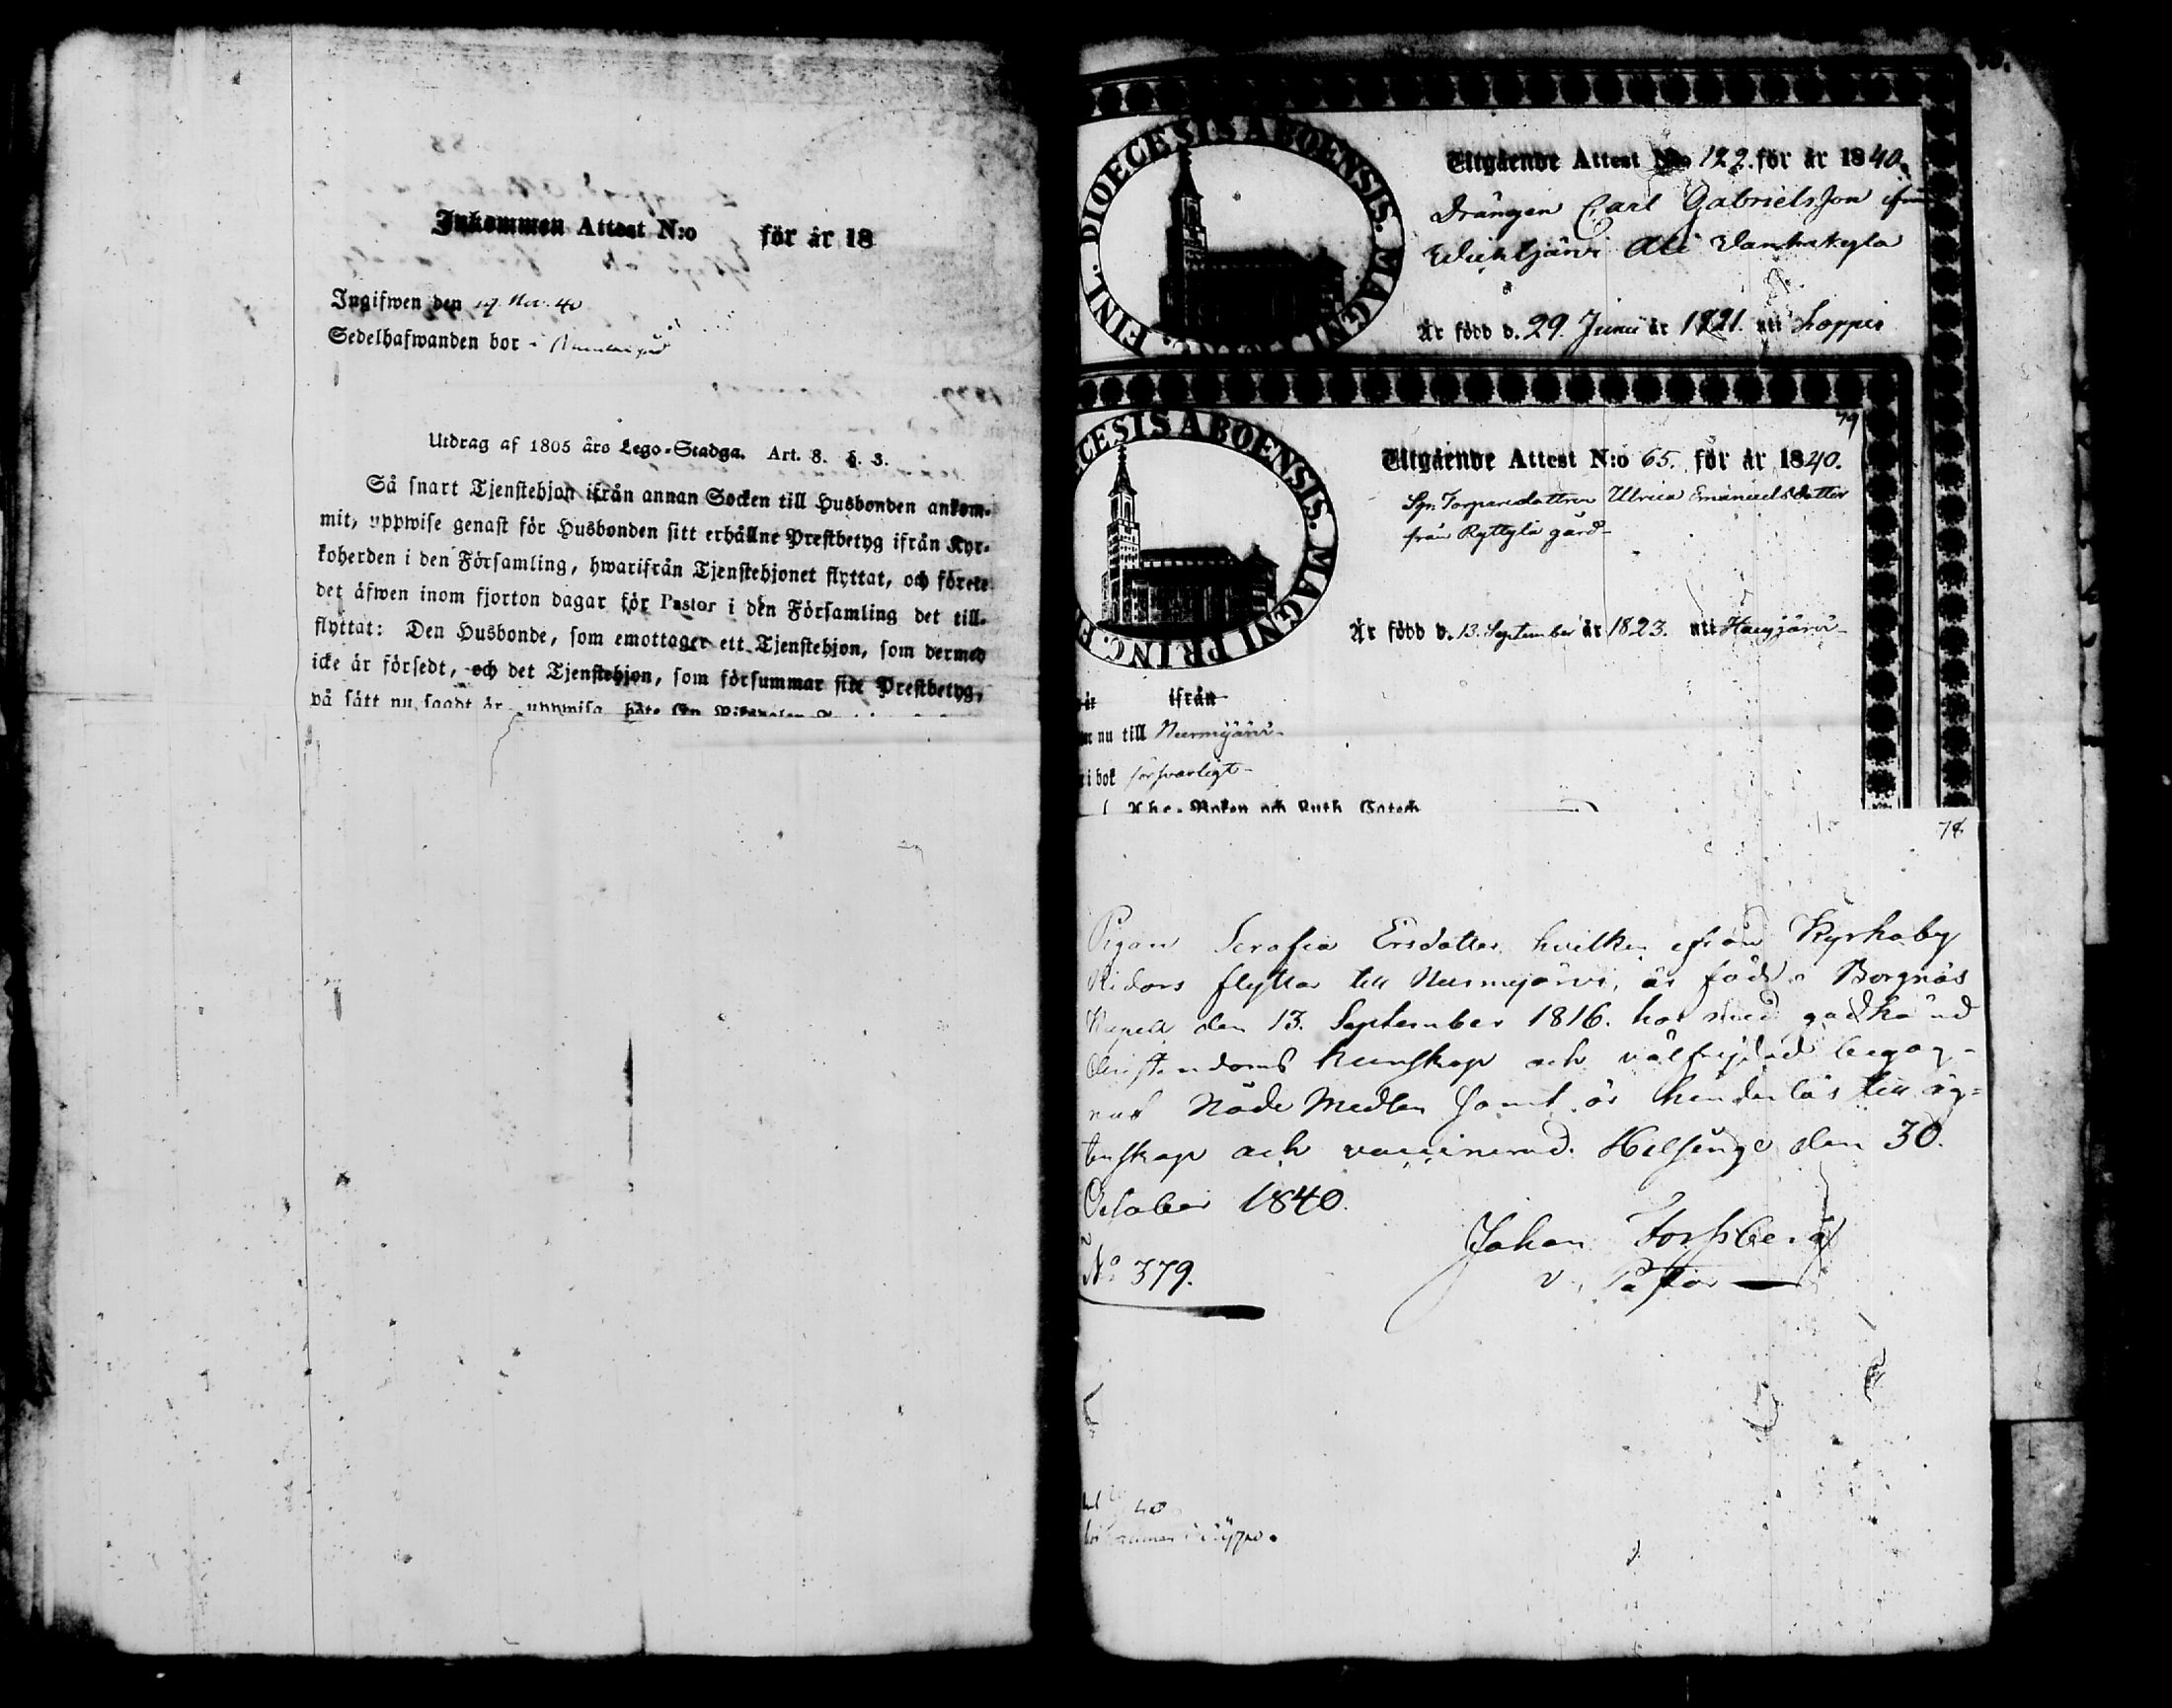 Inkommen Attest N:o för år 18
Ingifwen den 19. Nov. 40
Sedelhafwanden bor i
Utdrag af 1805 års Lego-Stadga. Art. 8. §. 3.
Så snart Tjenstehjon ifrån annan Socken till Husbonden ankom-
mit, uppwise genast för Husbonden sitt erhållne Prestbetyg ifrån Kyr-
koherden i den Församling, hwarifrån Tjenstehjonet flyttat, och förete
det äfwen inom fjorton dagar för Pastor i den Församling det till-
flyttat: Den Husbonde, som emottager ett Tjenstehjon, som dermed
icke är försedt, och det Tjenstehjon, som försummar sitt Prestbetyg,
på sätt nu sagdt är, uppwisa, böte
DIOECESIS ABOENSIS. MAGNI FINL.
Utgående Attest No 122. för år 1840.
Drängen Carl Gabrielsson ifrån
Wichtjärvi Ali Vanhakyla
Är född d. 29. Junii år 1821. uti Loppis
79
CESIS ABOENSIS. MAGNI PRINC. F
Utgående Attest N:o 65. för år 1840.
Torparedottren Ulrica Emanuelsdotter
från Ryttylä gård
Är född d. 13. September år 1823. uti Hausjärvi
ifrån
nu till Nurmijärvi
i bok försvarligt
Abc-Boken och Luth. Catech
78
Pigan Serafia Ersdotter hvilken ifrån Kyrkoby
Kidors flyttar till Nurmijärvi, är född i Borgnäs
Kapell den 13. September 1816. har med godkänd
Christendoms kunskap och välfrejdad begag-
nat Nåde Medlen samt är hinderlös till äg-
tenskap och vaccinerad. Helsinge den 30.
October 1840.
Johan Forssberg
v. Pastor
No 379.
40